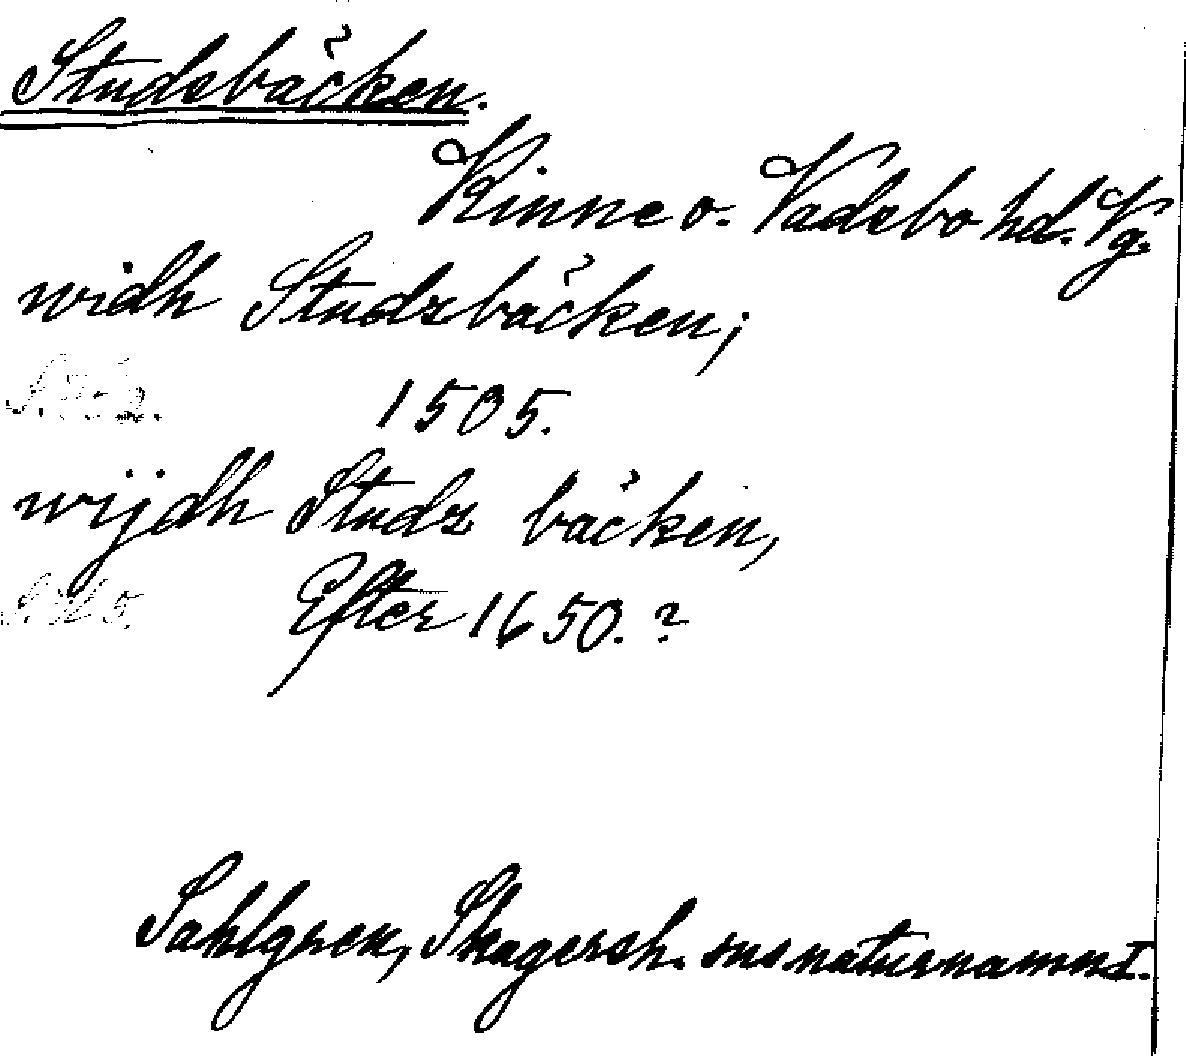 Studsbäcken.
Kinne o. Vadsbo hd. Vg.
widh Studzbäcken;
1505.
wijdh Studz bäcken,
Efter 1650. ?
Sahlgren, Skagersh. sns naturnamn I.